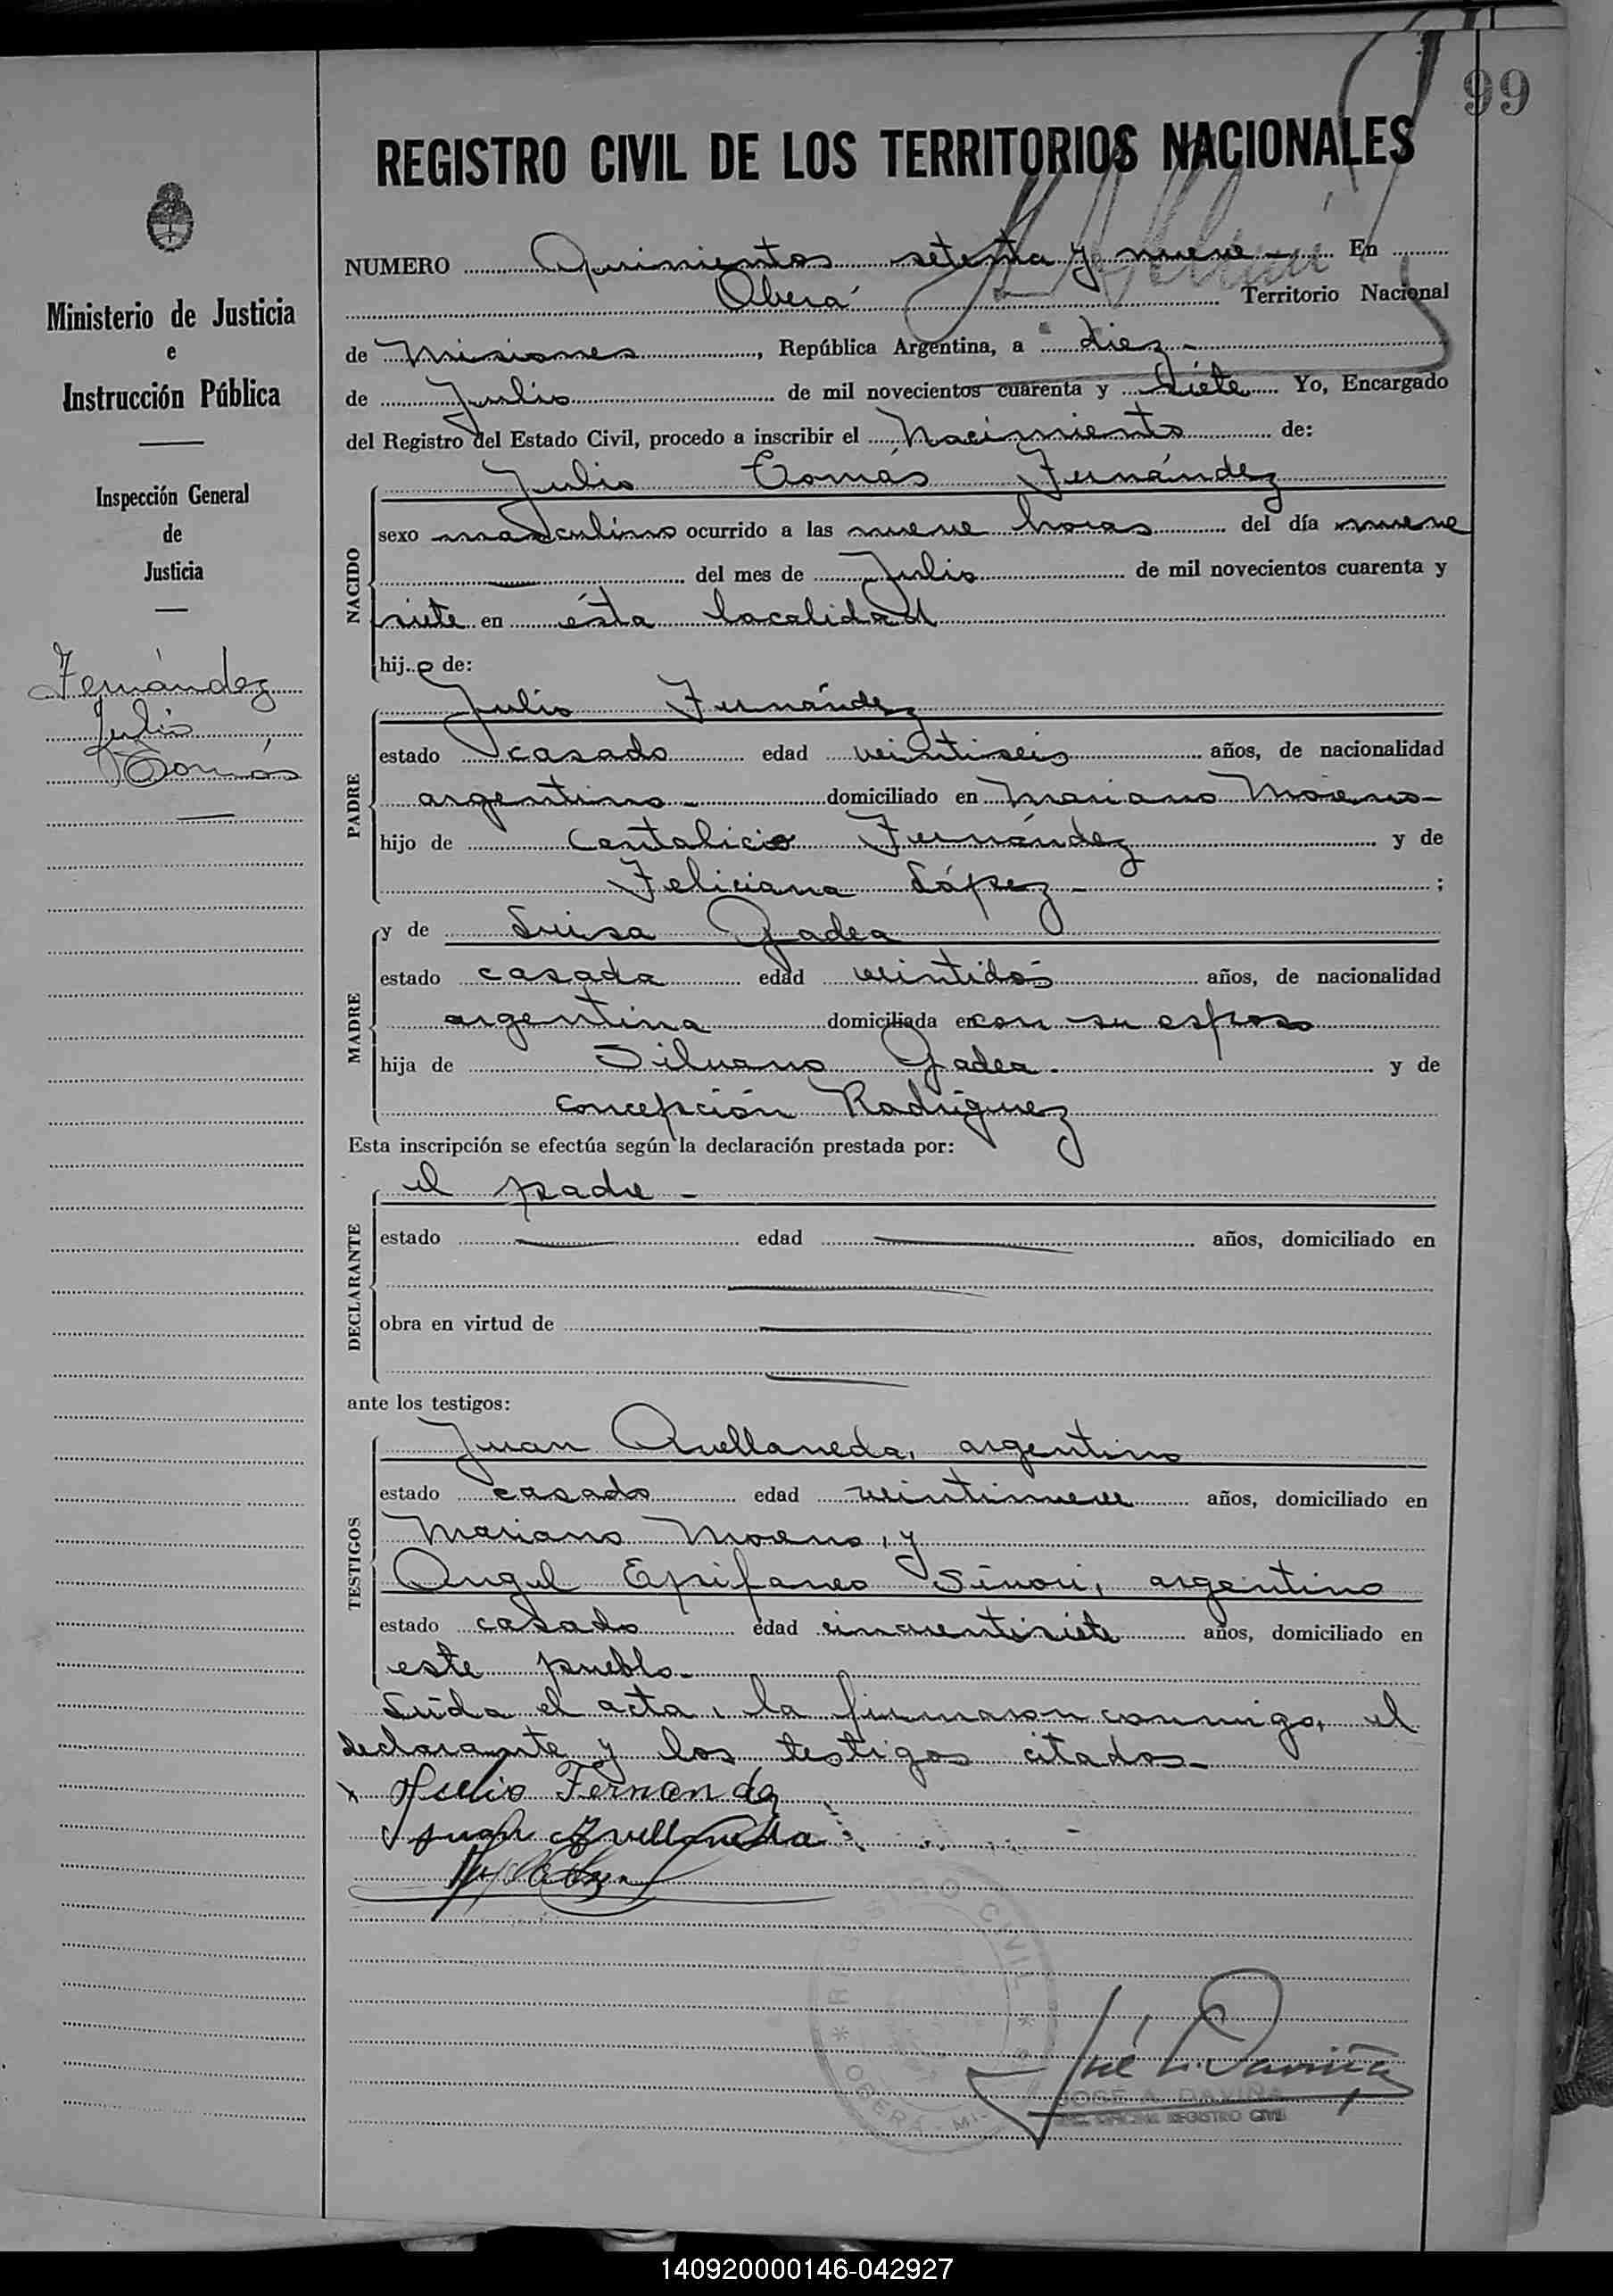 99
REGISTRO CIVIL DE LOS TERRITORIOS NACIONALES
NUMERO Quinientos setenta y nueve - En
Oberá Territorio Nacional
de Misiones, República Argentina, a diez -
de Julio de mil novecientos cuarenta y siete Yo, Encargado
del Registro del Estado Civil, procedo a inscribir el Nacimiento de:
Julio Tomás Fernández
sexo masculino ocurrido a las nueve horas del día nueve
— del mes de Julio de mil novecientos cuarenta y
siete en ésta localidad
hijo de:
NACIDO
Julio Fernández
estado casado edad veintiseis años, de nacionalidad
argentino - domiciliado en Mariano Moreno -
hijo de Cantalicio Fernández y de
Feliciana López - ;
PADRE
y de Luisa Gadea
estado casada edad veintidós años, de nacionalidad
argentina domiciliada en con su esposo
hija de Silvano Gadea - y de
Concepción Rodríguez
MADRE
Esta inscripción se efectúa según la declaración prestada por:
el padre -
estado — edad — años, domiciliado en
—
obra en virtud de —
—
DECLARANTE
ante los testigos:
Juan Avellaneda, argentino
estado casado edad veintinueve años, domiciliado en
Mariano Moreno, y
Angel Epifaneo argentino
estado casado edad cincuentisiete años, domiciliado en
este pueblo -
TESTIGOS
Leída el acta, la firmaron conmigo, el
declarante y los testigos citados -
x Julio Fernandez
Juan Avellaneda
REGISTRO CIVIL * OBERÁ - MI
JOSÉ A. DAVIÑA
OFICINA REGISTRO CIVIL
Ministerio de Justicia
e
Instrucción Pública
Inspección General
de
Justicia
Fernández
Julio
Tomás
—
140920000146-042927